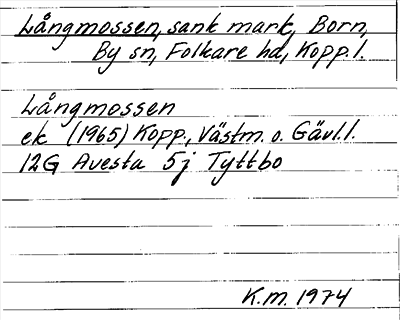 Långmossen, sank mark, Born,
By sn, Folkare hd, Kopp. l.
Långmossen
ek (1965) Kopp., Västm. o. Gävl. l.
12G Avesta 5j Tyttbo
K.m. 1974